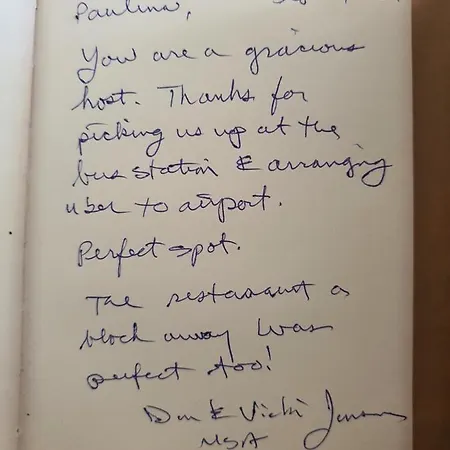 Paulina,
You are a gracious
host. Thanks for
picking us up at the
bus station & arranging
uber to airport.
Perfect spot.
The restaurant a
block away was
perfect too!
& Vicki
USA